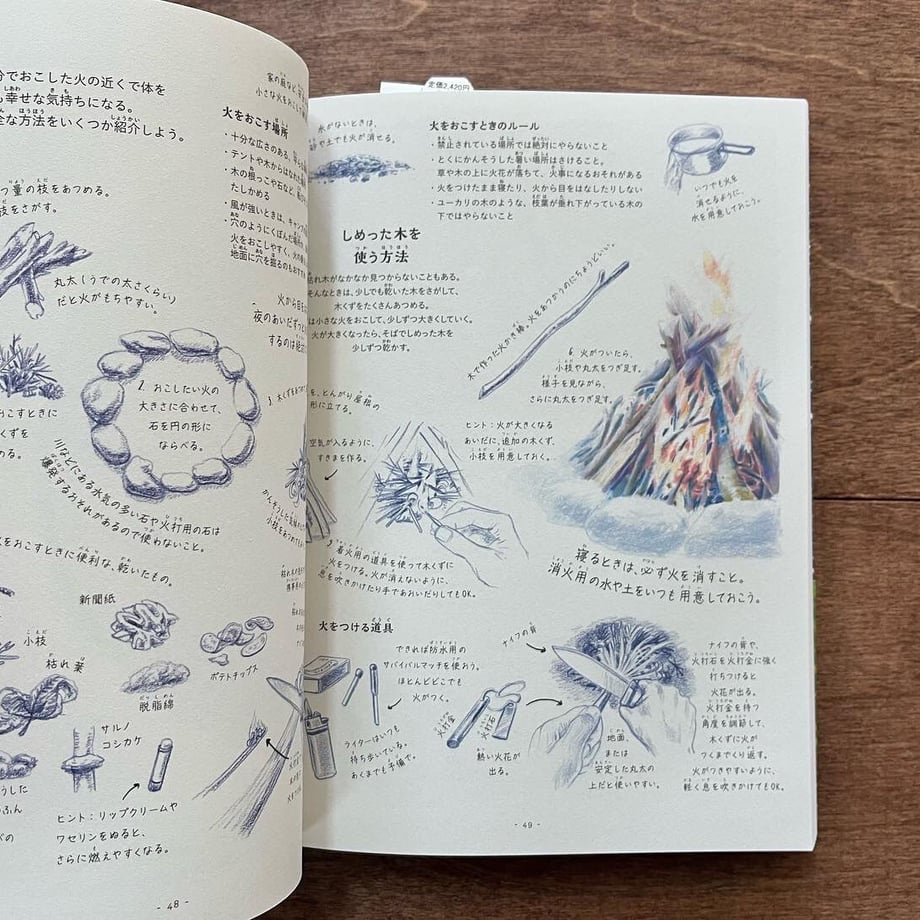 分でおこした火の近くで体を
も幸せな気持ちになる。
全な方法をいくつか紹介しよう。
つ量の枝をあつめる。
枝をさがす。
丸太（うでの太さくらい）
だと火がもちやすい。
おこすときに
くずを
める。
2. おこしたい火の
大きさに合わせて、
石を円の形に
ならべる。
川などにある水気の多い石や火打用の石は
爆発するおそれがあるので使わないこと。
火をおこすときに便利な、乾いたもの。
新聞紙
小枝
枯れ葉
脱脂綿
ポテトチップス
サルノ
コシカケ
ヒント：リップクリームや
ワセリンをぬると、
さらに燃えやすくなる。
- 48 -
家の庭など
小さな火をお
火をおこす場所
・十分な広さのある、
・テントや木からはなれ
・木の根っこや石など、
たしかめる
・風が強いときは、キャンプ
・穴のようにくぼんだ場所
火をおこしやすく、火
地面に穴を掘るのもおすす
火から目を
夜のあいだずっと
するのは絶
3. 木くずを
かんそうした
小枝をあつめて
定価2,420円
水がないときは、
砂や土でも火が消せる。
火をおこすときのルール
・禁止されている場所では絶対にやらないこと
・とくにかんそうした暑い場所はさけること。
草や木の上に火花が落ちて、火事になるおそれがある
・火をつけたまま寝たり、火から目をはなしたりしない
・ユーカリの木のような、枝葉が垂れ下がっている木の
下ではやらないこと
いつでも火を
消せるように、
水を用意しておく。
しめった木を
使う方法
枯れ木がなかなか見つからないこともある。
そんなときは、少しでも乾いた木をさがして、
木くずをたくさんあつめる。
は小さな火をおこして、少しずつ大きくしていく。
火が大きくなったら、そばでしめった木を
少しずつ乾かす。
木で作った火かき棒。火をあつかうのにちょうどいい。
6. 火がついたら、
小枝や丸太をつぎ足す。
様子を見ながら、
さらに丸太をつぎ足す。
を、とんがり屋根の
形に立てる。
空気が入るように、
すきまを作る。
ヒント：火が大きくなる
あいだに、追加の木くず、
小枝を用意しておく。
5. 着火用の道具を使って木くずに
火をつける。火が消えないように、
息を吹きかけたり手であおいだりしてもOK。
寝るときは、必ず火を消すこと。
消火用の水や土をいつも用意しておこう。
火をつける道具
できれば防水用の
サバイバルマッチを使おう。
ほとんどどこでも
火がつく。
ライターはいつも
持ち歩いている。
あくまでも予備で。
火打金
火打石
熱い火花が
出る。
ナイフの背
地面、
または
安定した丸太の
上だと使いやすい。
ナイフの背や、
火打石を火打金に強く
打ちつけると
火花が出る。
火打金を持つ
角度を調節して、
木くずに火が
つくまでくり返す。
火がつきやすいように、
軽く息を吹きかけてもOK。
- 49 -